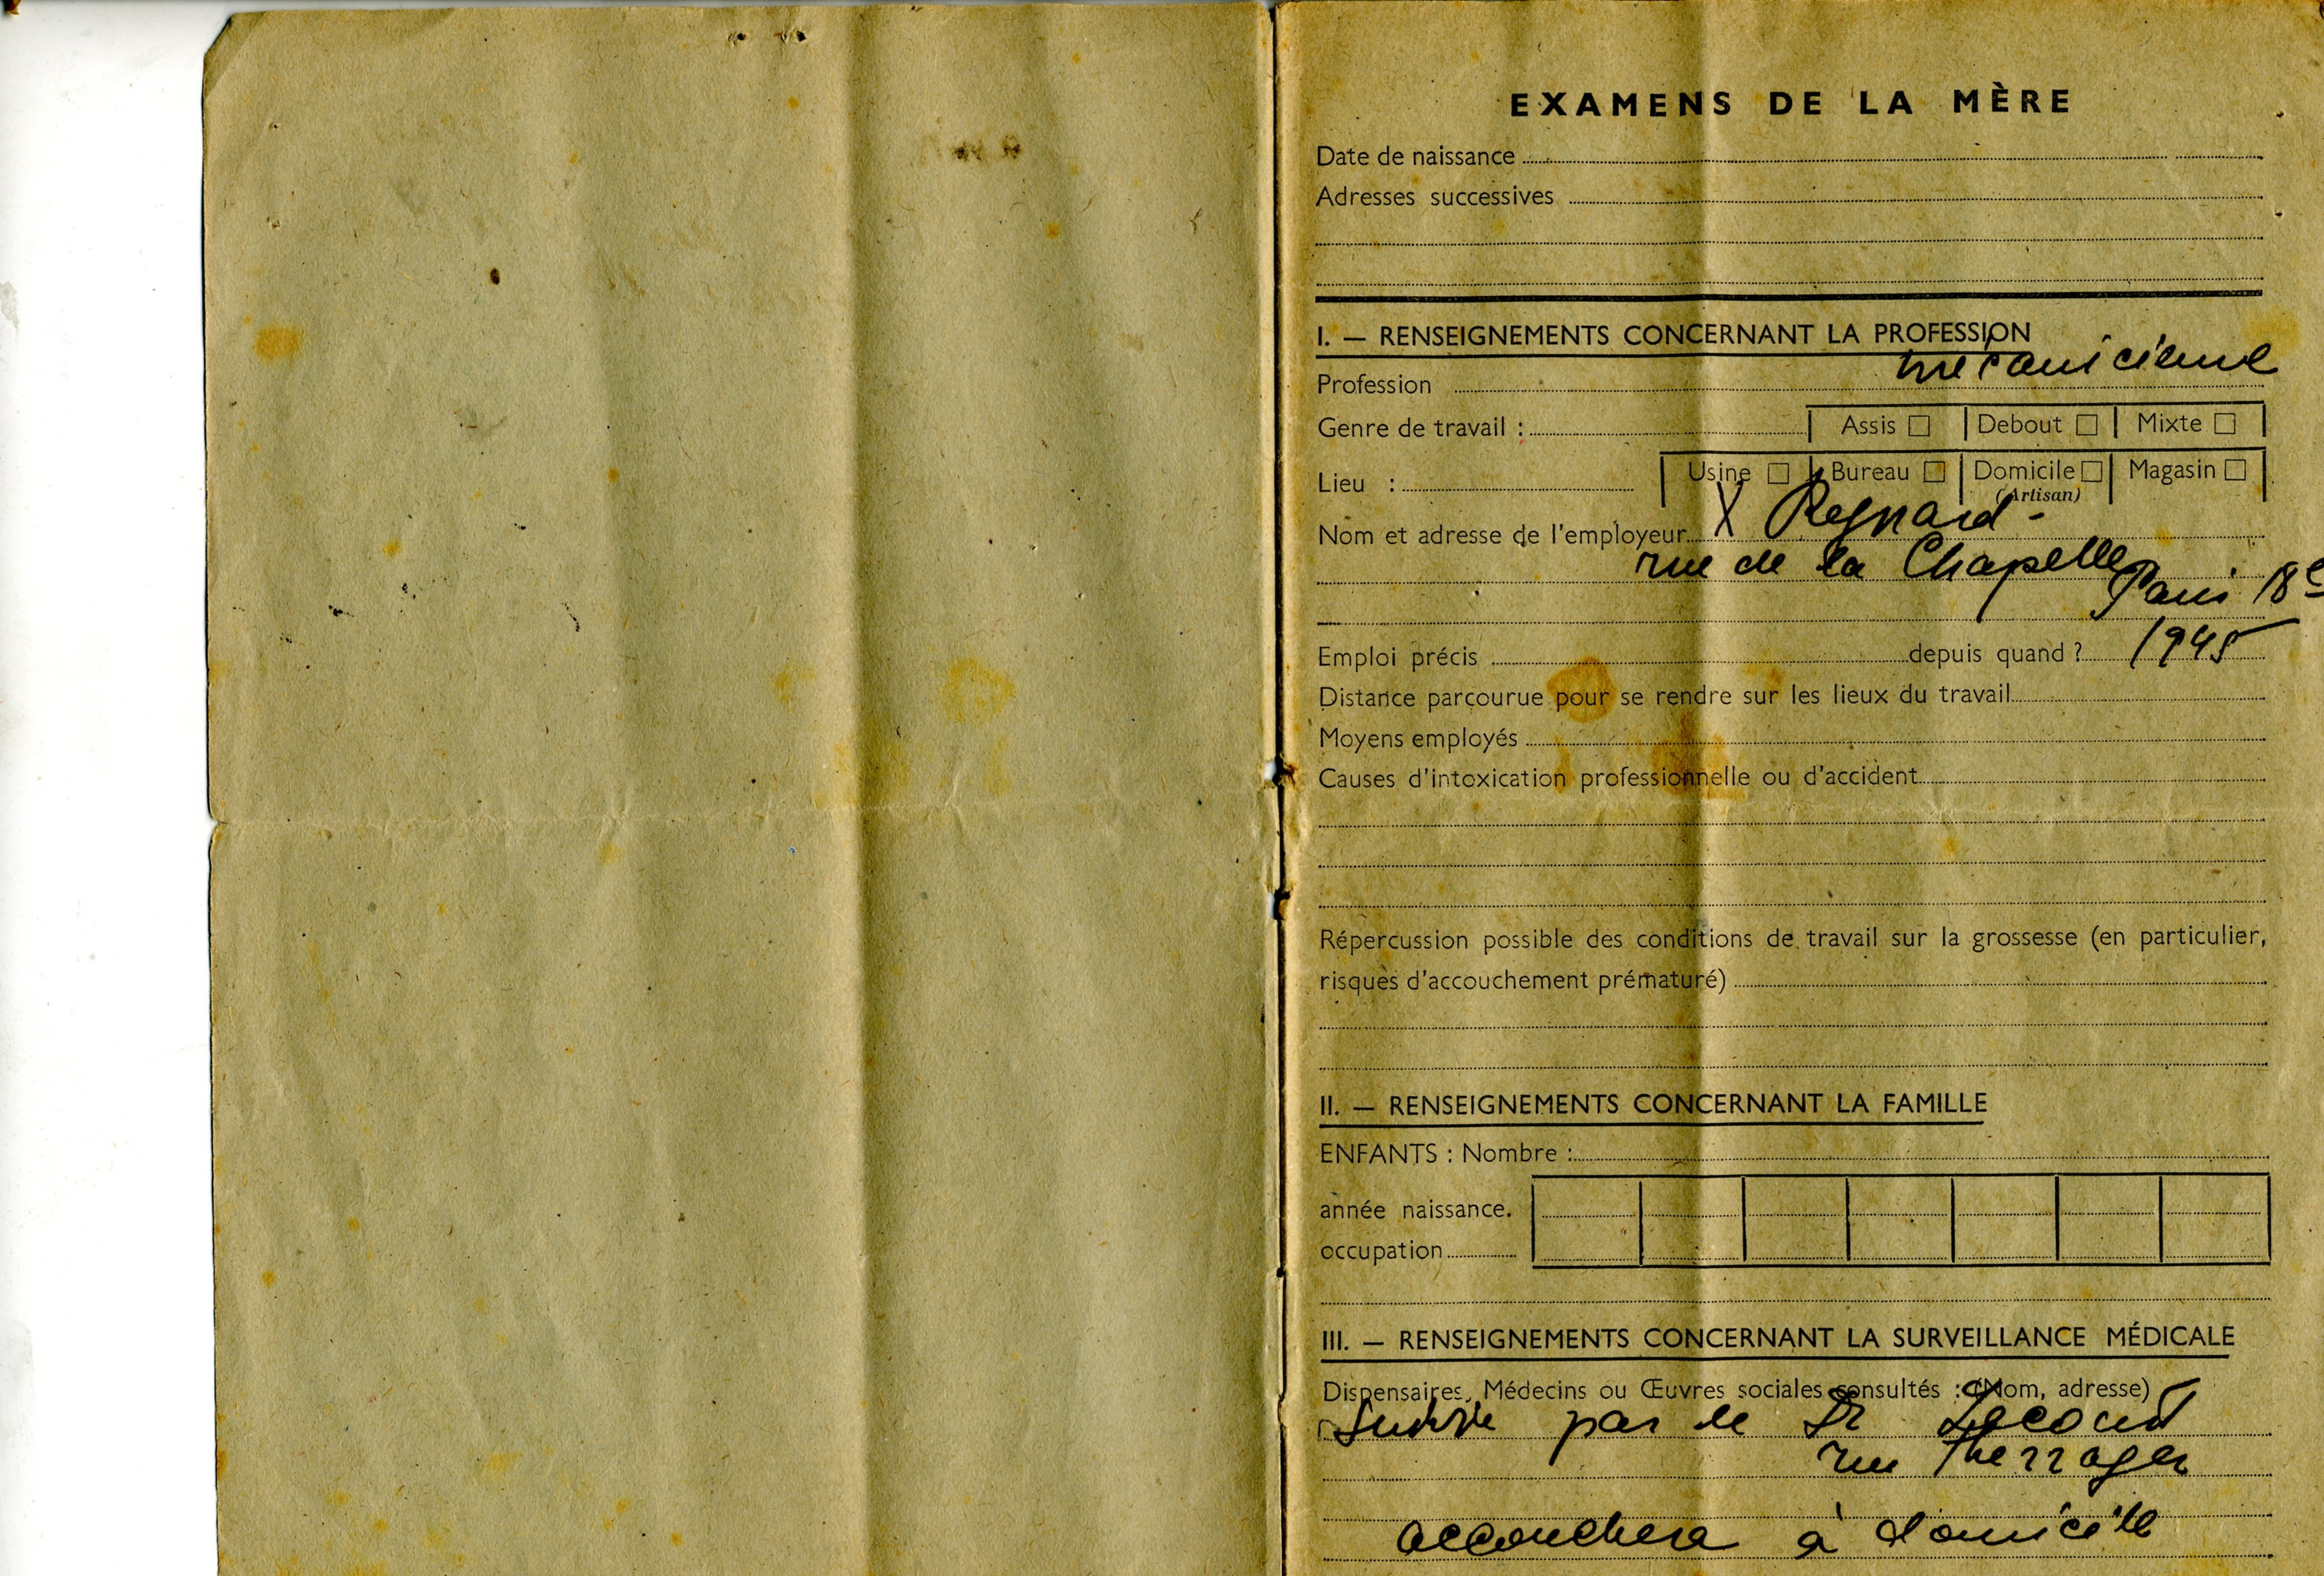 EXAMENS DE LA MÈRE
Date de naissance
Adresses successives
I. — RENSEIGNEMENTS CONCERNANT LA PROFESSION
mécanicienne
Profession
Genre de travail : Assis Debout Mixte
Lieu : Usine Bureau Domicile Magasin
(Artisan)
Nom et adresse de l'employeur X Regnard -
rue de la Chapelle
Paris 18e
Emploi précis depuis quand ? 1945
Distance parcourue pour se rendre sur les lieux du travail
Moyens employés
Causes d'intoxication professionnelle ou d'accident
Répercussion possible des conditions de travail sur la grossesse (en particulier,
risques d'accouchement prématuré)
II. — RENSEIGNEMENTS CONCERNANT LA FAMILLE
ENFANTS : Nombre :
année naissance.
occupation
III. — RENSEIGNEMENTS CONCERNANT LA SURVEILLANCE MÉDICALE
Dispensaires, Médecins ou Œuvres sociales consultés : (Nom, adresse)
Suivie par le Dr
rue
accouchera à domicile